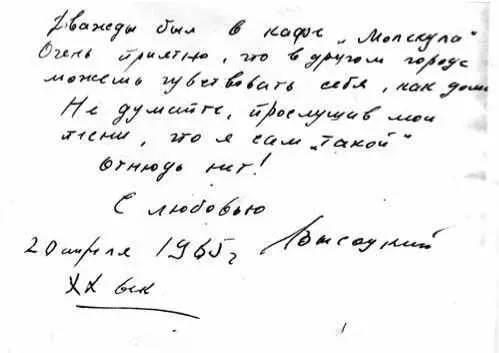 Дважды был в кафе „Молекула“
Очень приятно, что в другом городе
можешь чувствовать себя, как дома
Не думайте, прослушив мои
песни, что я сам „такой“
Отнюдь нет!
С любовью
20 апреля 1965г Высоцкий
XX век